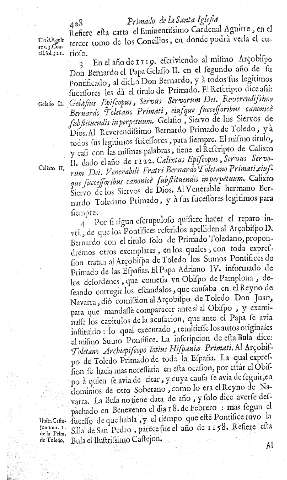 428 Primado de la Santa Iglesia
Refiere esta carta el Eminentissimo Cardenal Aguirre, en el
tercer tomo de los Concilios, en donde podrà verla el cu-
rioso.
3 En el año de 1119. escriviendo al mismo Arçobispo
Don Bernardo el Papa Gelasio II. en el segundo año de su
Pontificado, al dicho Don Bernardo, y à todos sus legitimos
sucessores les dà el titulo de Primado. El Rescripto dize assi:
Gelasio II.
Gelasius Episcopus, Servus Servorum Dei. Reverendissimo
Bernardo Toletano Primati, eiusque sucessoribus canonicè
substituendis in perpetuum. Gelasio, Siervo de los Siervos de
Dios. Al Reverendissimo Bernardo Primado de Toledo, y à
todos sus legitimos sucessores, para siempre. El mismo titulo,
y casi con las mismas palabras, tiene el Rescripto de Calixto
Calixto II.
II. dado el año de 1122. Calixtus Episcopus, Servus Servo-
rum Dei. Venerabili Fratri Bernardo Toletano Primati, eius-
que sucessoribus canonicè substituendis in perpetuum. Calixto
Siervo de los Siervos de Dios. Al Venerable hermano Ber-
nardo Toledano Primado, y à sus sucessores legitimos para
siempre.
4 Por si algun escrupuloso quisiere hazer el reparo
de que los Pontifices referidos apelliden al Arçobispo D.
Bernardo con el titulo solo de Primado Toledano, propon-
drèmos otros exemplares, en los quales, con toda expres-
sion tratan al Arçobispo de Toledo los Sumos Pontifices de
Primado de las Españas. El Papa Adriano IV. informado de
los desordenes, que cometia un Obispo de Pamplona, de-
seando corregir los escandalos, que causaba en el Reyno de
Navarra, diò comission al Arçobispo de Toledo Don Juan,
para que mandasse comparecer ante sì al Obispo, y exami-
nasse los capitulos de la acusacion, que ante el Papa se avia
instituido: lo qual executado, remitiesse los autos originales
al mismo Sumo Pontifice. La inscripcion de esta Bula dize:
Toletano Archiepiscopo totius Hispaniæ Primati. Al Arçobis-
po de Toledo Primado de toda la España. La qual expres-
sion se hazia mas necessaria en esta ocasion, por estàr el Obis-
po à quien se avia de citar, y cuya causa se avia de seguir, en
dominios de otro Soberano, como lo era el Reyno de Na-
varra. La Bula no tiene data de año, y solo dize averse des-
pachado en Benevento el dia 18. de Febrero: mas segun el
sucesso de que habla, y el tiempo que este Pontifice ruvo la
Silla de San Pedro, parece fue el año de 1158. Refiere esta
de Toledo.
Bula el Ilustrissimo Castejon.
Al